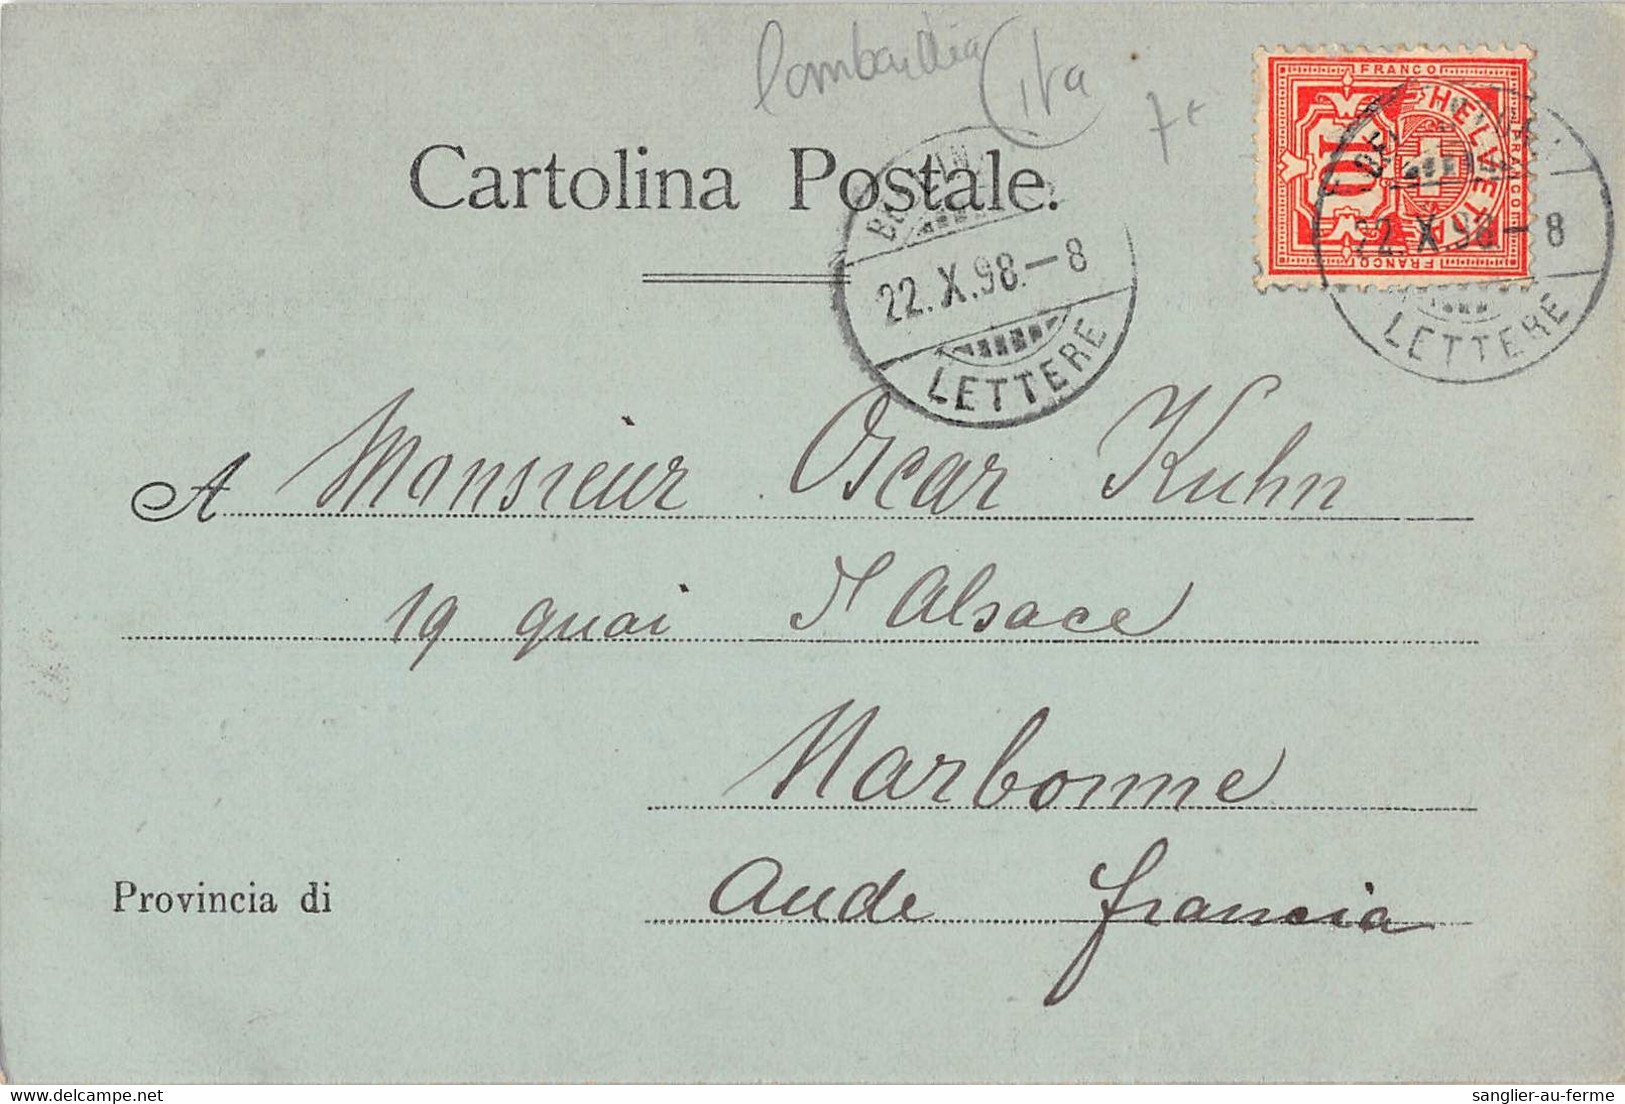 Lombardia ita
7€
Cartolina Postale.
FRANCO
HELVETIA
10
FRANCO
FRANCO
22.X.98.-8
LETTERE
22.X.98-8
LETTERE
A Monsieur Oscar Kuhn
19 quai d'Alsace
Narbonne
Provincia di Aude francia
sanglier-au-ferme